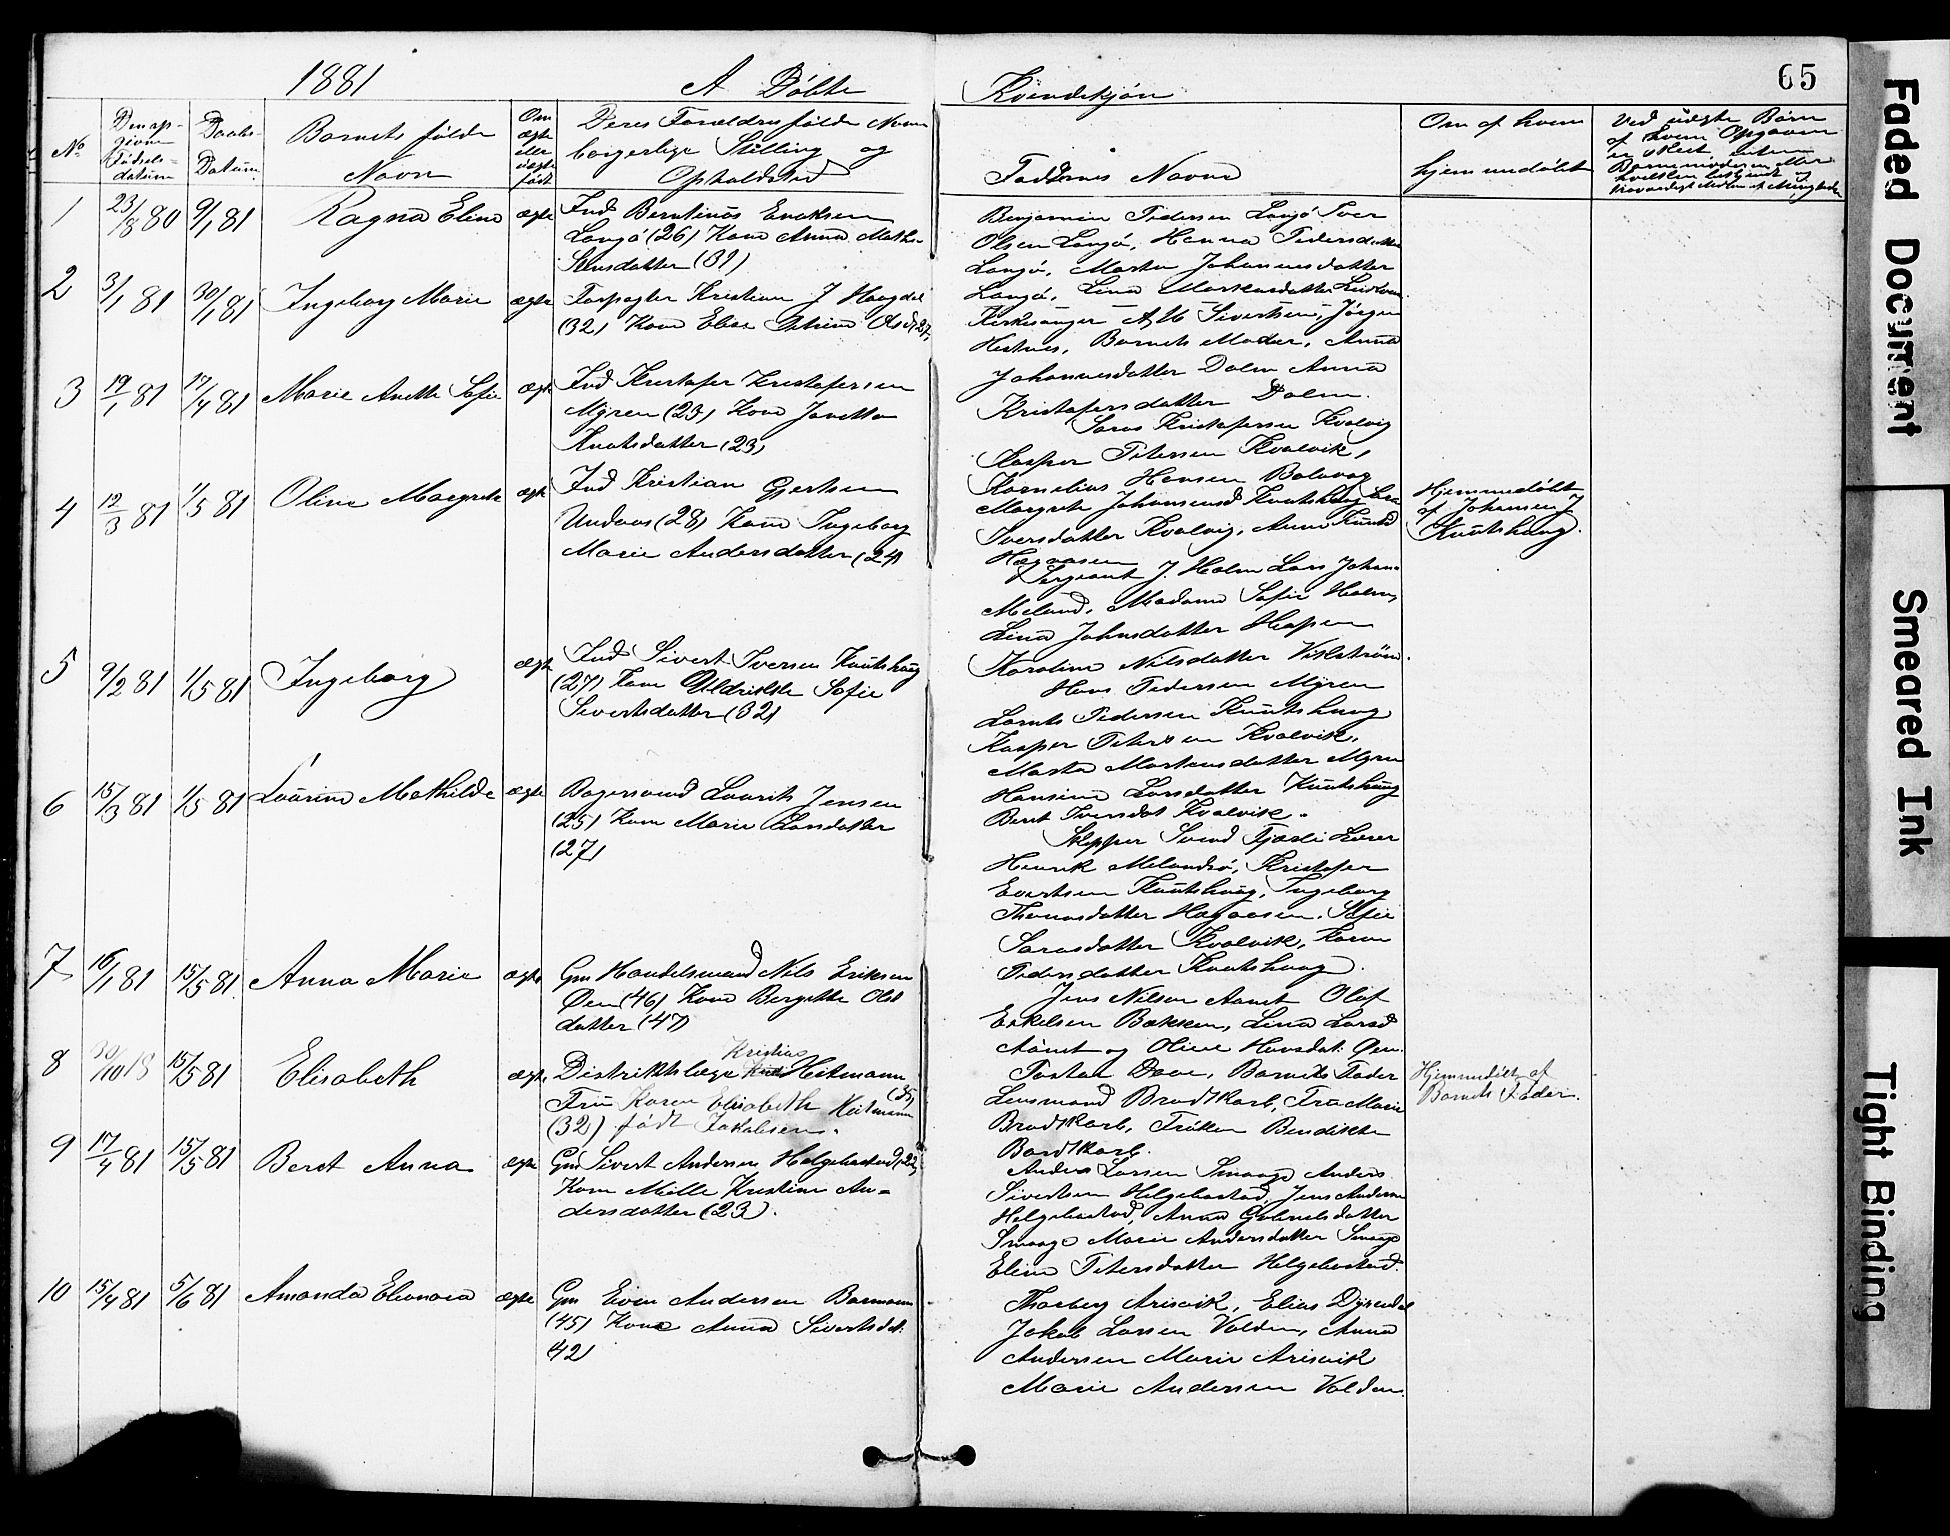 1881 A Döbte Kvindekjön 65
No
Den op-
givne
Födsels-
datum
Daabs-
Datum
Barnets fulde
Navn
Om
ægte
eller
uægte
født
Deres Forældres fulde Navn
borgerlige Stilling og
Opholdsted
Faddernes Navne
Om af hvem
hjemmedöbt
Ved uægte Börn
af hvem Opgaven
er skeet, enten
Barnemoderen eller
1 23/8 80 9/1 81 Ragna Elina ægte Ind Berntinus Ericksen
Langö (26) Kone Anna Mathi-
sensdatter (31)
Benjamin Pedersen Langö Iver
Olsen Langö, Hanna Pedersdatter
Langö, Marta Johannesdatter
Langö, Lina
2 3/1 81 30/1 81 Ingeborg Marie ægte Forpagter Kristian J Haugdal
(32) Kone Elise
Kirkesanger A M Sivertsen, Jörgen
Hestnes, Barnets Moder, Anna
Johannesdatter Dalen Anna
Kristofersdatter Dalen.
3 19/1 81 17/4 81 Marie Anette Sofie ægte Ind Kristofer Kristofersen
Myren (23) Kone Janetta
Knutsdatter (23)
Lars Kristofersen Kvalvig
Kasper Petersen Kvalvik,
Kornelius Hansen
Margrete Johansensd Knutshaug
Iversdatter Kvalvig, Anne
4 12/3 81 1/5 81 Oline Margrete ægte Ind Kristian Gjertsen
Undaas (28) Kone Ingeborg
Marie Andersdatter (24)
Sergeant J. Holm Lars Johans
Meland, Madame Sofie Holm,
Lina Johnsdatter Hopen
Karoline Nilsdatter Vikström.
Hjemmedöbt
af Johannes J
Knutshaug.
5 9/2 81 1/5 81 Ingeborg ægte Ind Sivert Iversen Knutshaug
(27) Kone Uldrikke Sofie
Sivertsdatter (32)
Hans Pedersen Myren
Lornts Pedersen Knutshaug
Kasper Petersen Kvalvik,
Marta Martensdatter Myren
Hansine Larsdatter Knutshaug
Beret Iversdat Kvalvik.
6 15/3 81 1/5 81 Laurine Mathilde ægte Bagersvend Laurits Jensen
(25) Kone Marie Larsdatter
(27)
Skipper Svend Fjæsli Lærer
Henrik Melandsö, Kristofer
Evertsen Knutshaug, Ingeborg
Thomasdatter Hagaasen, Sofie
Larsdatter Kvalvik, Karen
Pedersdatter Knutshaug.
7 16/1 81 15/5 81 Anna Marie ægte Gm Handelsmand Nils Eriksen
Öen (46) Kone Bergitte Ols
datter (47)
Jens Nilsen Aanet Olaf
Erikslen Bækken, Lina Larsd
Aanet og Oline Hansdat. Öen.
8 30/10 18 15/5 81 Elisabeth ægte. Distriktslæge Kristian Heitmann
(35)
Fru Karen Elisabeth Heitmann
(32) født Jakobsen.
Pastor Daae, Barnets Fader
Lensmand Brodtkorb, Fru Marie
Brodtkorb, Fröken Bendikte
Brodtkorb.
Hjemmedöbt af
Barnets Fader.
9 17/4 81 15/5 81 Beret Anna ægte Gm Sivert Andersen Helgebostad (22)
Kone Mille Kristine An-
dersdatter (23).
Anders Larsen Smaage Anders
Sivertsen Helgebostad, Jens Andersen
Helgebostad, Anna Gabrielsdatter
Smaage Marie Andersdatter Smaage
Elina Petersdatter Helgebostad.
10 15/4 81 5/6 81 Amanda Elenora ægte Gm Even Andersen Barmann
(45) Kone Anna Sivertsdat.
42)
Thorberg Arisvik, Elias Dyrendal
Jakob Larsen Valden, Anna
Andersen Marie Arisvik
Marie Andersen Valden.
Faded Document
Smeared Ink
Tight Binding